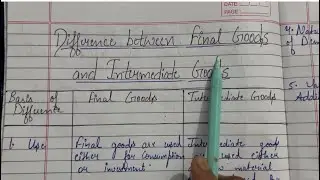 Difference between Final Goods
and Intermediate Goods
Basis of Difference
Final Goods
Intermediate Goods
1. Use
Final goods are used
either for consumption
or investment.
Intermediate goods
used either
material
by
4. Natu
of D
5.
Adde